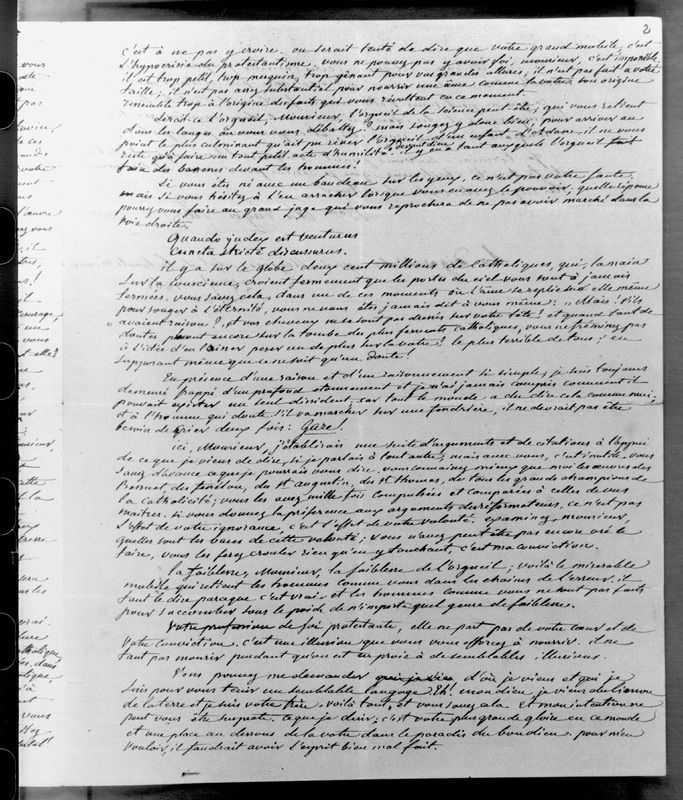 2
c'est à ne pas y croire. on serait tenté de dire que votre grand mobile, c'est
l'hypocrisie du protestantisme. vous ne pouvez pas y avoir foi, monsieur, c'est impossible,
il est trop petit, trop mesquin, trop gênant pour vos grandes allures; il n'est pas fait à votre
taille; il n'est pas assez substantiel pour nourrir une âme comme la votre son origine
ressemble trop à l'origine des faits qui vous révoltent en ce moment.
Serait-ce l'orgueil, Monsieur, l'orgueil de la science peut être, qui vous retient
dans les langes où vous vous débattez? mais songez y donc bien, pour arriver au
point le plus culminant qu'ait pu rêver l'orgueil d'un enfant d'Adam, il ne vous
reste qu'à faire un tout petit acte d'humilité. il y en a tant auxquels l'orgueil fait
faire des bassesses devant les hommes!
Si vous êtes né avec un bandeau sur les yeux, ce n'est pas votre faute;
mais si vous hésitez à l'en arracher lorsque vous en avez le pouvoir, quelle réponse
pourrez vous faire au grand juge qui vous reprochera de ne pas avoir marché dans la
voie droite.
Quando judex est venturus
Cuncta stricte discussurus.
il y a sur le globe deux cent millions de Catholiques, qui, la main
sur la conscience, croient fermement que les portes du ciel vous sont à jamais
fermées. vous savez cela, dans un de ces moments où l'âme se replie sur elle même
pour songer à l'éternité, vous ne vous êtes jamais dit à vous même: "Mais! s'ils
"avaient raison?, et vos cheveux ne se sont pas dressés sur votre tête! et quand tant de
doutes peuvent encore sur la tombe des plus fervents catholiques, vous ne frémirez pas
à l'idée d'en laisser peser un de plus sur la votre! le plus terrible de tous! en
supposant même que ce ne soit qu'un doute!
En présence d'une raison et d'un raisonnement si simples, je suis toujours
demeuré frappé d'un profond étonnement et je n'ai jamais compris comment il
pouvait exister un seul dissident, car tout le monde a du dire cela comme moi;
et à l'homme qui doute s'il va marcher sur une fondrière, il ne devrait pas être
besoin de crier deux fois: Gare!
ici, Monsieur, j'établirais une suite d'arguments et de citations à l'appui
de ce que je viens de dire, si je parlais à tout autre; mais avec vous, c'est inutile. vous
savez d'avance ce que je pourrais vous dire. vous connaissez mieux que moi les œuvres des
Bossuet, des fénélon, des St augustin, des St thomas, de tous les grands champions de
la catholicité; vous les avez mille fois compulsées et comparées à celles de vos
maîtres. si vous donnez la préférence aux arguments des réformateurs, ce n'est pas
l'effet de votre ignorance, c'est l'effet de votre volonté. examinez, monsieur,
quelles sont les bases de cette volonté; vous n'avez peut être pas encore osé le
faire, vous les ferez crouler rien qu'en y touchant, c'est ma conviction.
la faiblesse, Monsieur, la faiblesse de l'orgueil; voilà le misérable
mobile qui retient les hommes comme vous dans les chaines de l'erreur. il
faut le dire parceque c'est vrai. et les hommes comme vous ne sont pas faits
pour succomber sous le poids de n'importe quel genre de faiblesse.
Votre profession de foi protestante, elle ne part pas de votre cœur et de
votre conviction. c'est une illusion que vous vous efforcez à nourrir. il ne
faut pas mourir pendant qu'on est en proie à de semblables illusions
Vous pouvez me demander d'où je viens et qui je
suis pour vous tenir un semblable langage. Eh! mon dieu, je viens du limon
de la terre et je suis votre frère. voilà tout, et vous savez cela. et mon intention ne
peut vous être suspecte. ce que je désire, c'est votre plus grande gloire en ce monde
et une place au dessous de la votre dans le paradis du bon dieu. pour m'en
vouloir, il faudrait avoir l'esprit bien mal fait.